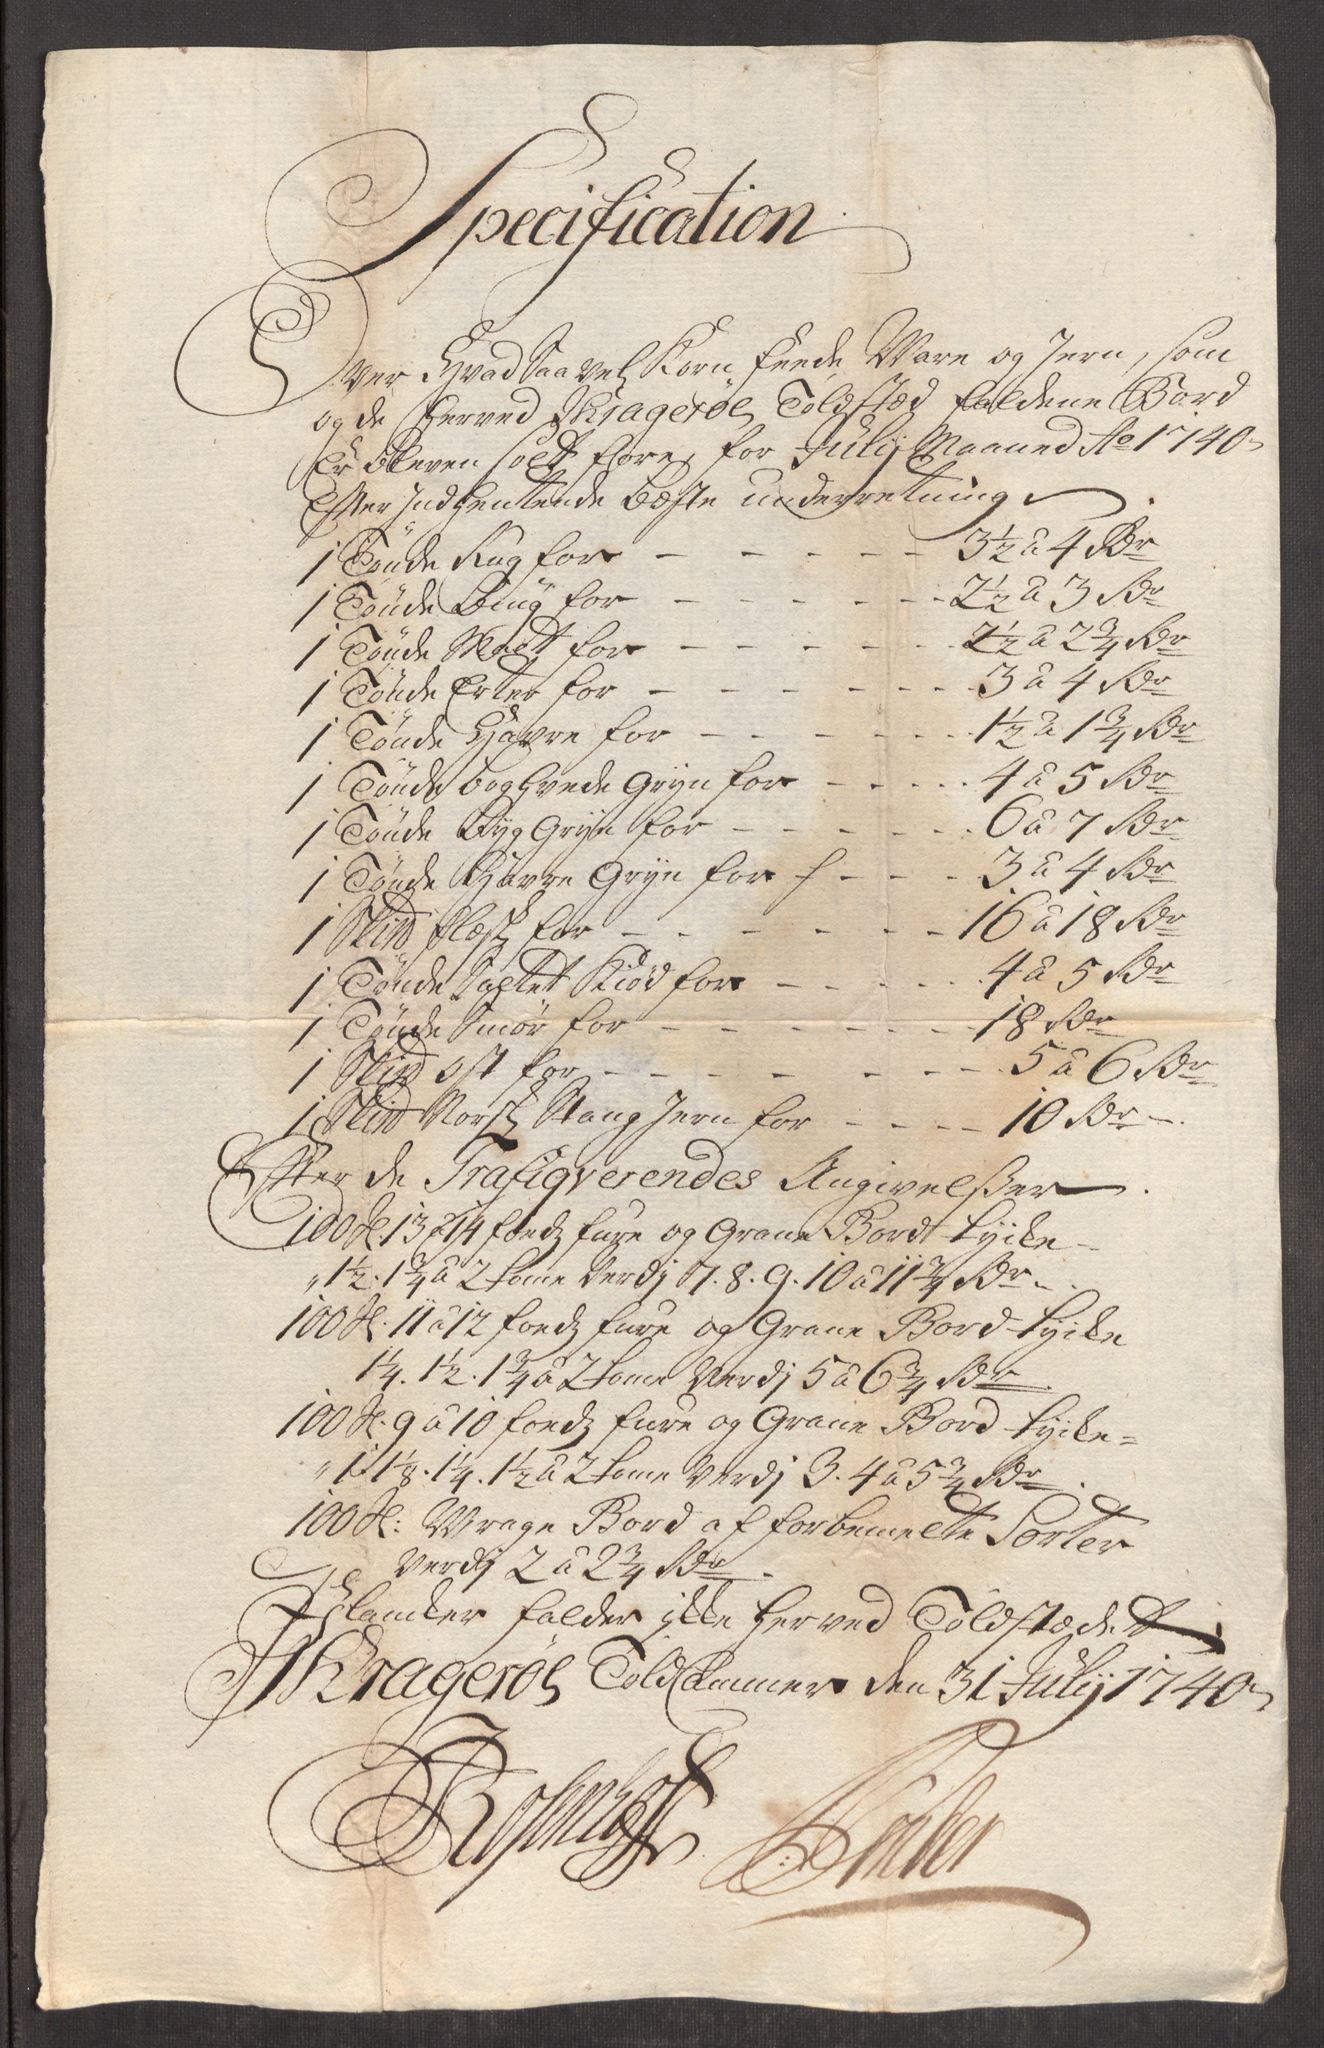 Specification
Over Hvad Saavel Korn feede Ware og Jern, som
og de herved Kragerøes Toldsted faldene Bord
Er bleven solt fore, for Julij Maaned Ao 1740
Efter Indhentende beste underretning
1 Tönde Rug for - - - - - - 3½ â 4 Rdr
1 Tönde Biug for - - - - - - 2½ â 3 Rdr
1 Tönde Malt for - - - - - - 2½ â 2¾ Rdr
1 Tönde Erter for - - - - - - 3 â 4 Rdr
1 Tönde Havre for - - - - - - 1½ â 1¾ Rdr
1 Tönde boghvede Gryn for - - - - 4 â 5 Rdr
1 Tönde Byg Gryn for - - - - - 6 â 7 Rdr
1 Tönde Havre Gryn for - - - 3 â 4 Rdr
1 Skind flesk for - - - - - - 16 â 18 Rdr
1 Tönde Saltet Kiød for - - - - 4 â 5 Rdr
1 Tönde Smør for - - - - - - 18 Rdr
1 Skind ost for - - - - - - - 5 â 6 Rdr
1 Skind Norsk Stang Jern for - - - - 10 Rdr
Efter de Trafiqverendes Angivelßer
100 st. 13 â 14 foeds fure og Grane Bord tycke
" 1½. 1¾ â 2 tome Verdj 7. 8. 9. 10 â 11¾ Rdr
100 st. 11 â 12 foeds fure og Grane Bord tycke
1¼. 1½. 1¾ â 2 tome Verdj 5 â 6¾ Rdr
100 st. 9 â 10 foeds fure og Grane Bord tycke
" 1. 1⅛. 1¼. 1½ â 2 tome Verdj 3. 4 â 5¾ Rdr
100 st: Wrage Bord af forbemelte Sorter
Verdj 2 â 2¾ Rdr
Plancker falder ikke herved Toldstedet
Kragerøes Told Cammer den 31 Julij 1740